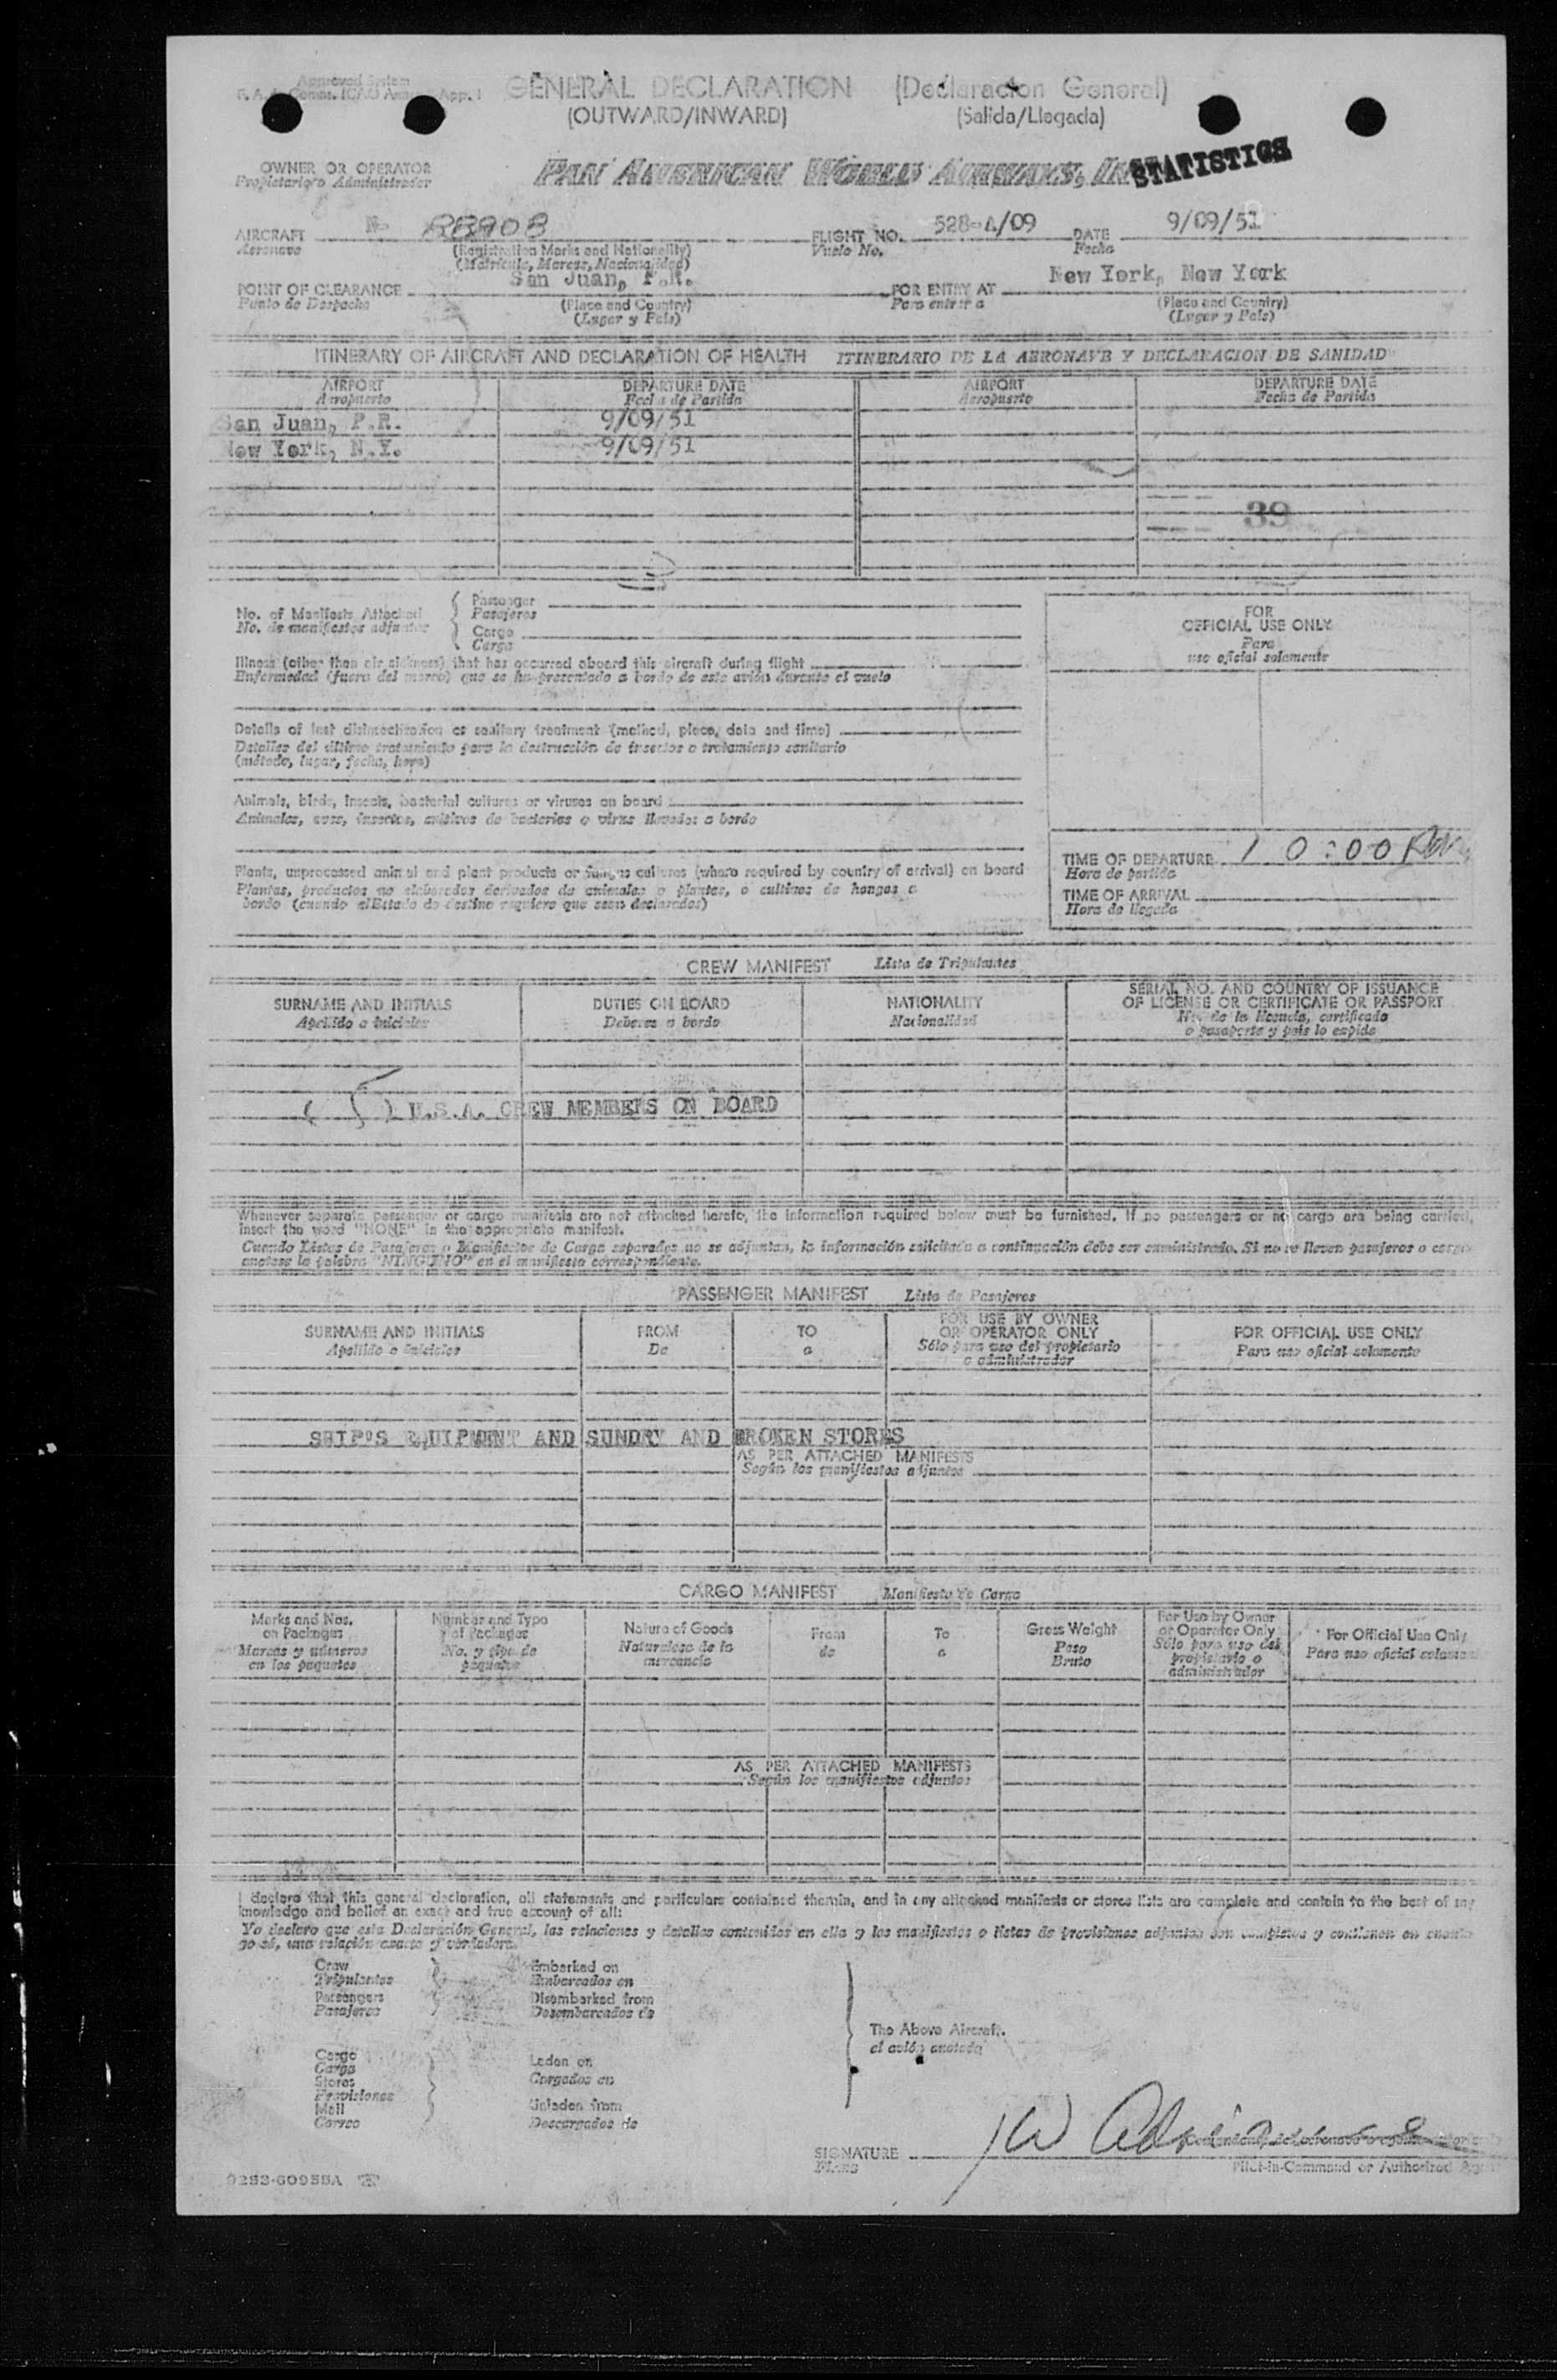 Approved System
GENERAL DECLARATION (Declaracion General)
(OUTWARD/INWARD) (Salida/Llegada)
OWNER OR OPERATOR
Propietario o Administrador
PAN AMERICAN WORLD AIRWAYS, IN
STATISTICS
AIRCRAFT N- 88908 FLIGHT NO. 528-A/09 DATE 9/09/51
Aeronave (Registration Marks and Nationality) Vuelo No. Fecha
(Matricula, Marcas, Nacionalidad)
POINT OF CLEARANCE San Juan, P.R. FOR ENTRY AT New York, New York
Punto de Despacho (Place and Country) Para entrar a (Place and Country)
(Lugar y Pais) (Lugar y Pais)
ITINERARY OF AIRCRAFT AND DECLARATION OF HEALTH ITINERARIO DE LA AERONAVE Y DECLARACION DE SANIDAD
AIRPORT DEPARTURE DATE AIRPORT DEPARTURE DATE
Aeropuerto Fecha de Partida Aeropuerto Fecha de Partida
San Juan, P.R. 9/09/51
New York, N.Y. 9/09/51
39
No. of Manifests Attached Passenger
No. de manifiestos adjuntos Pasajeros
Cargo
Carga
FOR
OFFICIAL USE ONLY
Para
uso oficial solamente
Illness (other than air sickness) that has occurred aboard this aircraft during flight
Enfermedad (fuera del mareo) que se ha presentado a bordo de este avión durante el vuelo
Details of last disinsectization or sanitary treatment (method, place, date and time)
Detalles del último tratamiento para la destrucción de insectos o tratamiento sanitario
(método, lugar, fecha, hora)
Animals, birds, insects, bacterial cultures or viruses on board
Animales, aves, insectos, cultivos de bacterias o virus llevados a bordo
Plants, unprocessed animal and plant products or fungus cultures (where required by country of arrival) on board
Plantas, productos no elaborados derivados de animales o plantas, o cultivos de hongos a
bordo (cuando el Estado de destino requiera que sean declarados)
TIME OF DEPARTURE 10:00
Hora de partida
TIME OF ARRIVAL
Hora de llegada
CREW MANIFEST Lista de Tripulantes
SURNAME AND INITIALS DUTIES ON BOARD NATIONALITY SERIAL NO. AND COUNTRY OF ISSUANCE
OF LICENSE OR CERTIFICATE OR PASSPORT
Apellido e iniciales Deberes a bordo Nacionalidad No. de la licencia, certificado
o pasaporte y pais lo expide
( 5 ) U.S.A. CREW MEMBERS ON BOARD
Whenever separate passenger or cargo manifests are not attached hereto, the information required below must be furnished. If no passengers or no cargo are being carried,
insert the word "NONE" in the appropriate manifest.
Cuando Listas de Pasajeros o Manifiestos de Carga separados no se adjuntan, la información solicitada a continuación debe ser suministrada. Si no se lleven pasajeros o carga
anótese la palabra "NINGUNO" en el manifiesto correspondiente.
PASSENGER MANIFEST Lista de Pasajeros
SURNAME AND INITIALS FROM TO FOR USE BY OWNER
OR OPERATOR ONLY FOR OFFICIAL USE ONLY
Apellido e iniciales De a Sólo para uso del propietario
o administrador Para uso oficial solamente
SHIP'S EQUIPMENT AND SUNDRY AND BROKEN STORES
AS PER ATTACHED MANIFESTS
Según los manifiestos adjuntos
CARGO MANIFEST Manifiesto de Carga
Marks and Nos.
on Packages
Marcas y números
en los paquetes
Number and Type
of Packages
No. y tipo de
paquetes
Nature of Goods
Naturaleza de la
mercancía
From
de
To
a
Gross Weight
Peso
Bruto
For Use by Owner
or Operator Only
Sólo para uso del
propietario o
administrador
For Official Use Only
Para uso oficial solamente
AS PER ATTACHED MANIFESTS
Según los manifiestos adjuntos
I declare that this general declaration, all statements and particulars contained therein, and in any attached manifests or stores lists are complete and contain to the best of my
knowledge and belief an exact and true account of all:
Yo declaro que esta Declaración General, las relaciones y detalles contenidos en ella y los manifiestos o listas de provisiones adjuntas son completos y contienen en cuanto
yo sé, una relación exacta y verdadera.
Crew Embarked on
Tripulantes Embarcados en
Passengers Disembarked from
Pasajeros Desembarcados de
The Above Aircraft.
el avión anotado
Cargo
Carga
Stores
Provisiones
Mail
Correo
Laden on
Cargados en
Unladen from
Descargados de
SIGNATURE
Firma
Pilot-in-Command or Authorized